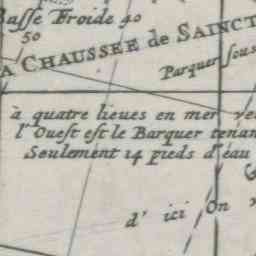 Basse Froide 40
50
A CHAUSSEE de SAINCT
Parquer sous
à quatre lieues en mer ve
l'Ouest est le Barquer tenan
Seulement 14 pieds d'eau
d' ici On